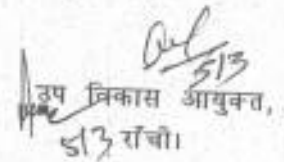 5/3
उप विकास आयुक्त,
5/3 राँची।